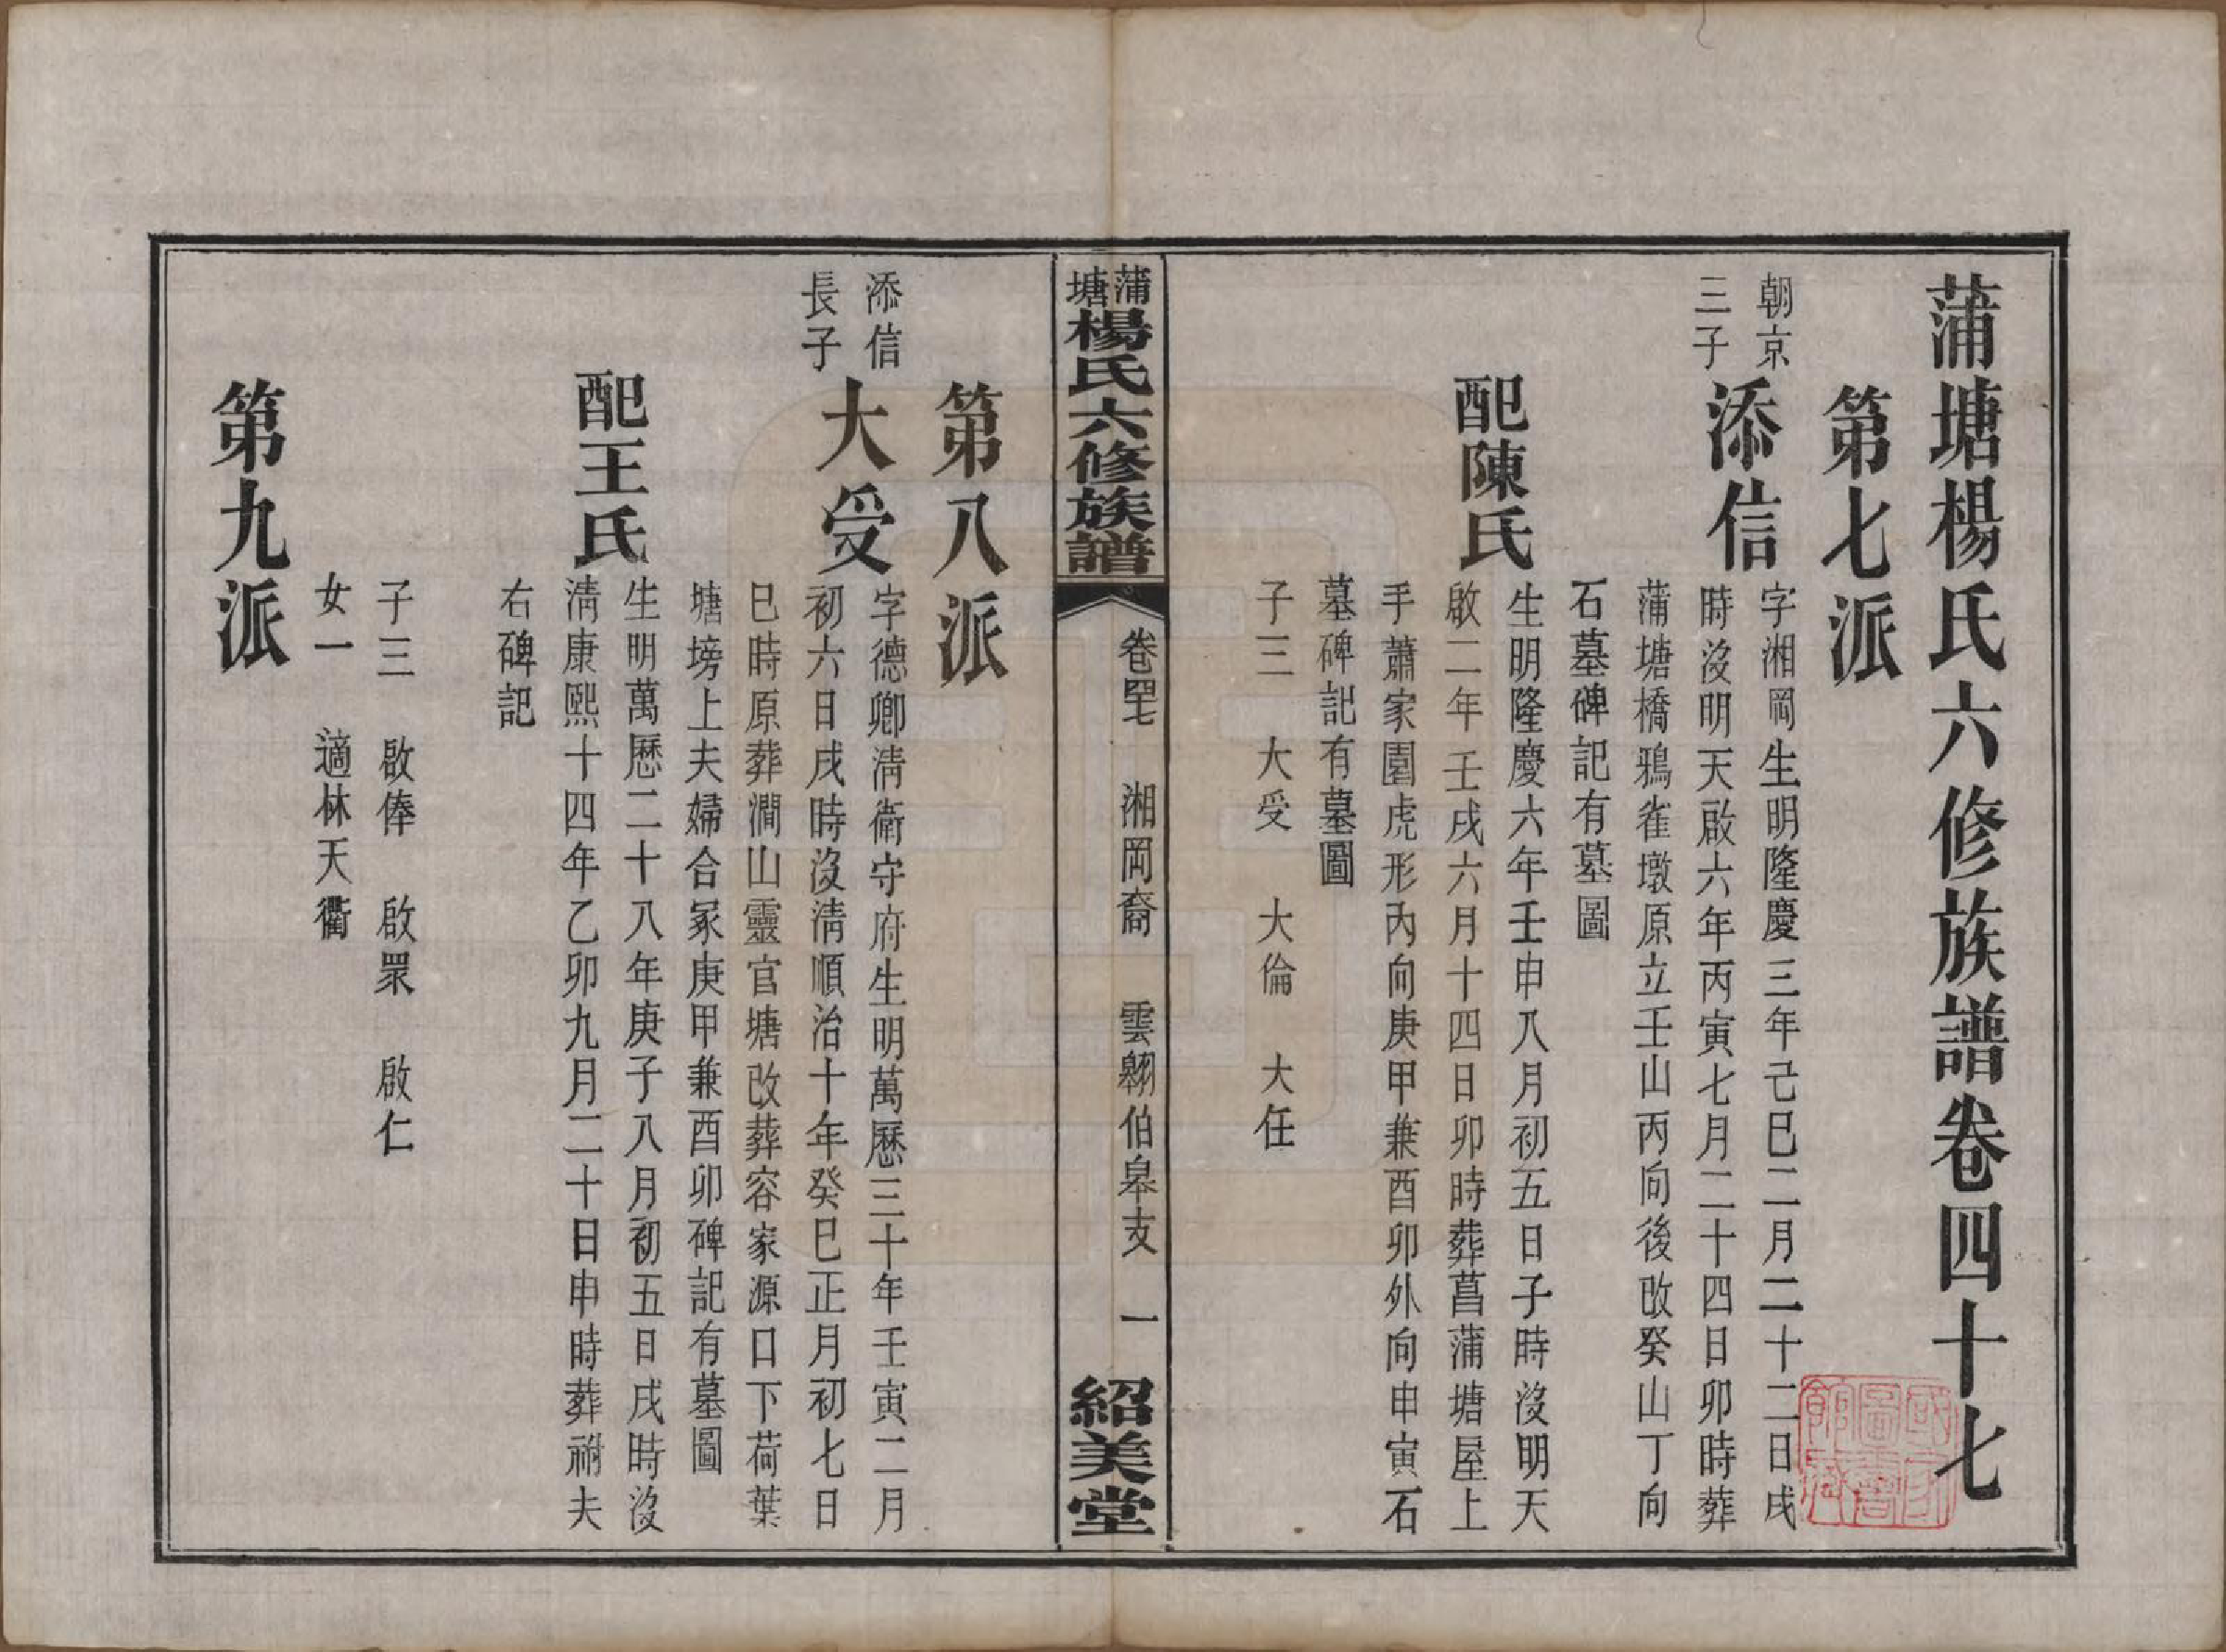 蒲塘楊氏六修族譜卷四十七
第七派
朝京
三子
添信
字湘岡生明隆慶三年己巳二月二十二日戌
時沒明天啟六年丙寅七月二十四日卯時葬
蒲塘橋鴉雀墩原立壬山丙向後改癸山丁向
石墓碑記有墓圖
配陳氏
生明隆慶六年壬申八月初五日子時沒明天
啟二年壬戌六月十四日卯時葬菖蒲塘屋上
手蕭家園虎形內向庚甲兼酉卯外向申寅石
墓碑記有墓圖
子三 大受 大倫 大任
蒲塘楊氏六修族譜
卷四七 湘岡裔 雲翱伯皋支 一
紹美堂
第八派
添信
長子
大受
字德卿清衛守府生明萬歷三十年壬寅二月
初六日戌時沒清順治十年癸巳正月初七日
巳時原葬澗山靈官塘改葬容家源口下荷葉
塘塝上夫婦合冢庚甲兼酉卯碑記有墓圖
配王氏
生明萬歷二十八年庚子八月初五日戌時沒
清康熙十四年乙卯九月二十日申時葬祔夫
右碑記
子三 啟俸 啟眾 啟仁
女一 適林天衢
第九派
國家圖書館藏